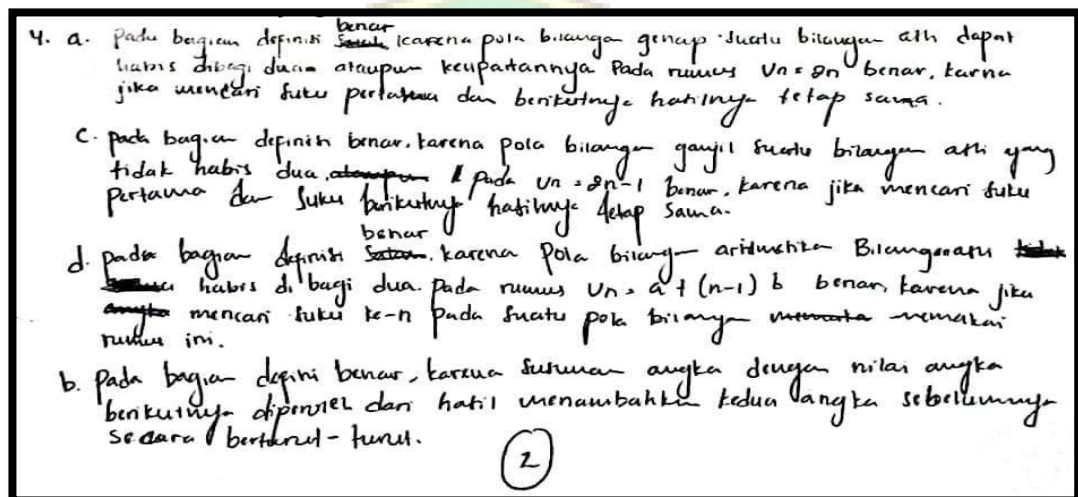 4. a. Pada bagian definisi benar karena pola bilangan genap suatu bilangan asli dapat
habis dibagi dua ataupun keupatannya Pada rumus Un = 2n benar, karna
jika mencari suku pertama dan berikutnya hasilnya tetap sama.
c. pada bagian definisi benar, karena pola bilangan ganjil suatu bilangan asli yang
tidak habis dua, pada Un = 2n-1 benar, karena jika mencari suku
Pertama dan suku berikutnya hasilnya tetap sama.
d. pada bagian definisi benar, karena Pola bilangan aritmetika
habis di bagi dua. Pada rumus Un = a + (n-1) b benar, karena jika
mencari suku ke-n pada suatu pola bilangan memakai
rumus ini.
b. Pada bagian defini benar, karena susunan angka dengan nilai angka
berikutnya diperoleh dari hasil menambahkan kedua angka sebelumnya
secara berturut-turut.
2